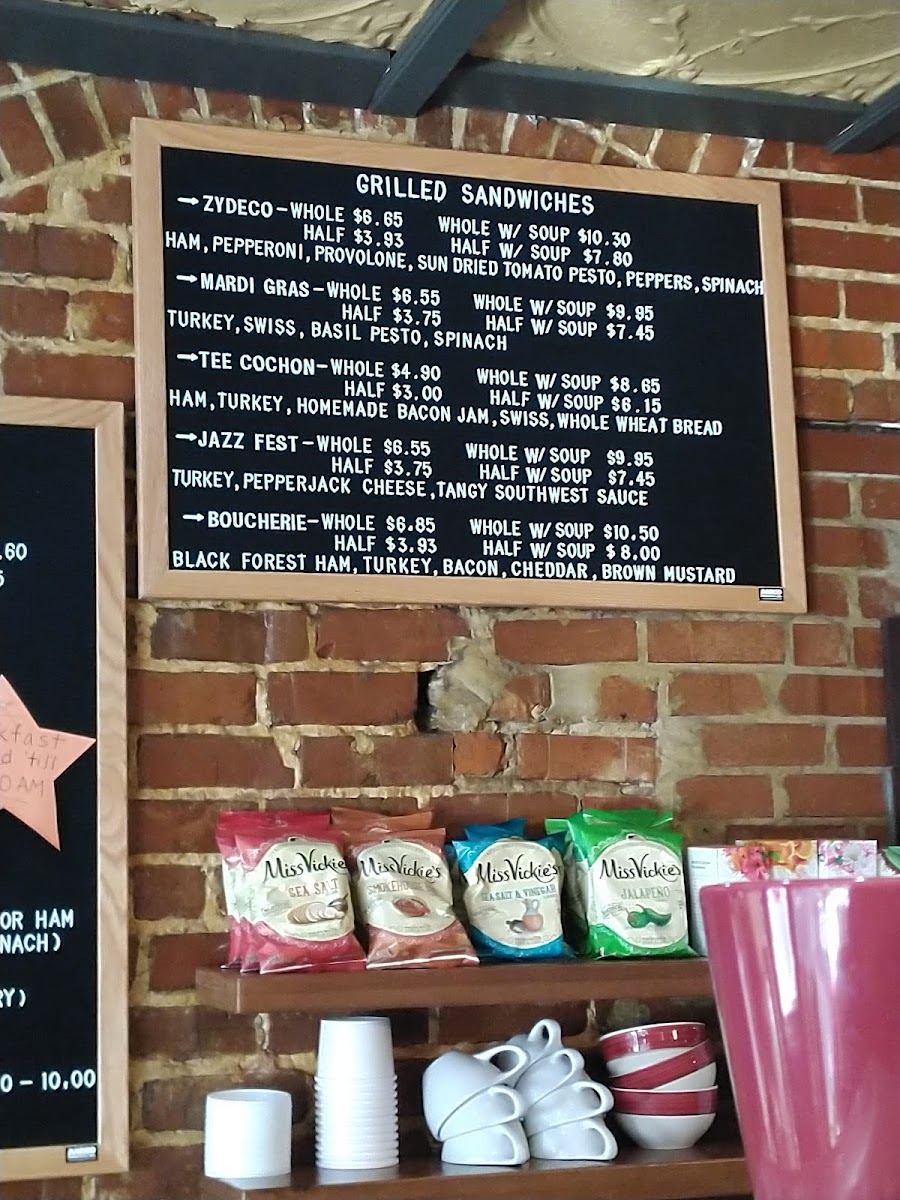 GRILLED SANDWICHES
→ZYDECO-WHOLE $6.65 WHOLE W/ SOUP $10.30
HALF $3.93 HALF W/ SOUP $7.80
HAM, PEPPERONI, PROVOLONE, SUN DRIED TOMATO PESTO, PEPPERS, SPINACH
→MARDI GRAS-WHOLE $6.55 WHOLE W/ SOUP $9.95
HALF $3.75 HALF W/ SOUP $7.45
TURKEY, SWISS, BASIL PESTO, SPINACH
→TEE COCHON-WHOLE $4.90 WHOLE W/ SOUP $8.65
HALF $3.00 HALF W/ SOUP $6.15
HAM, TURKEY, HOMEMADE BACON JAM, SWISS, WHOLE WHEAT BREAD
→JAZZ FEST-WHOLE $6.55 WHOLE W/ SOUP $9.95
HALF $3.75 HALF W/ SOUP $7.45
TURKEY, PEPPERJACK CHEESE, TANGY SOUTHWEST SAUCE
→BOUCHERIE-WHOLE $6.85 WHOLE W/ SOUP $10.50
HALF $3.93 HALF W/ SOUP $8.00
BLACK FOREST HAM, TURKEY, BACON, CHEDDAR, BROWN MUSTARD
.60
kfast
d 'till
0 AM
OR HAM
NACH)
RY)
0 - 10.00
Miss Vickie's
SEA SALT
Miss Vickie's
SMOKEHOUSE
Miss Vickie's
SEA SALT & VINEGAR
Miss Vickie's
JALAPEÑO